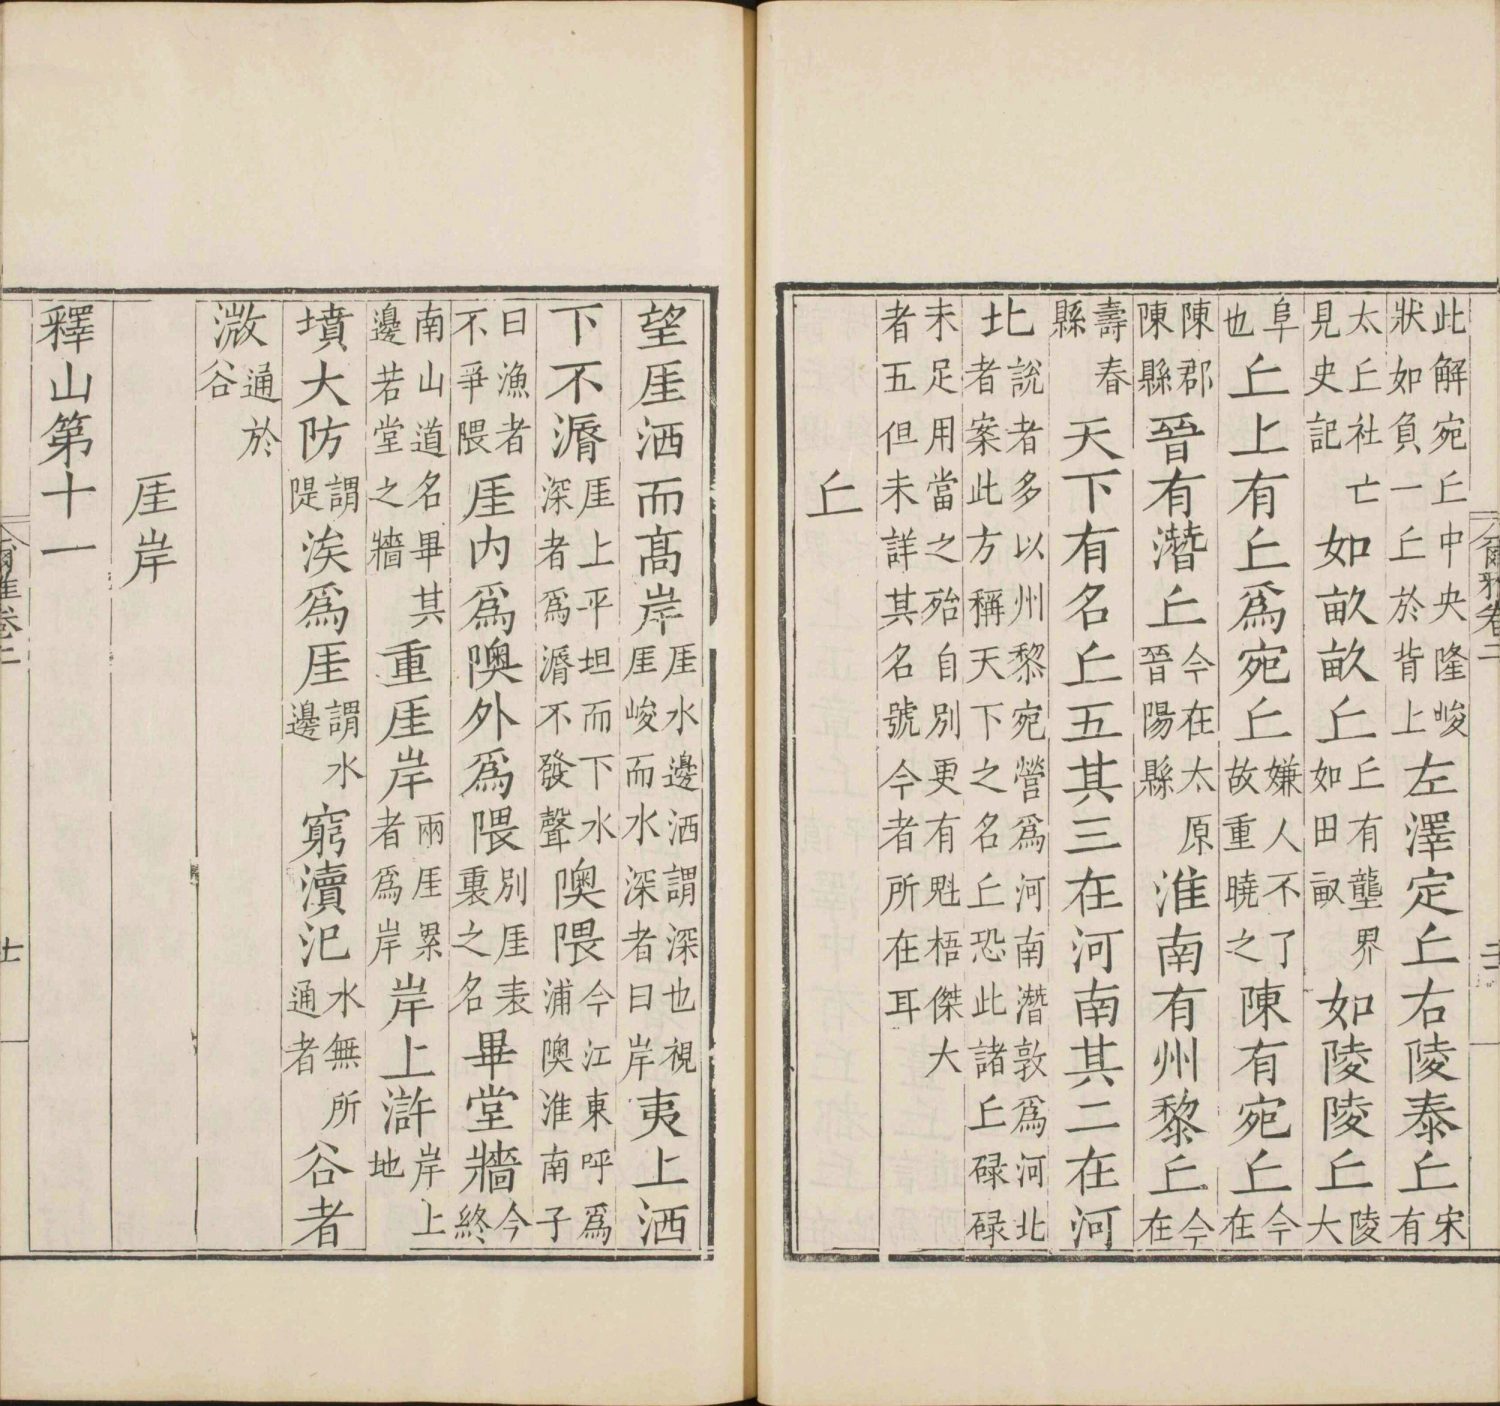 爾雅卷二
此解宛丘中央隆峻狀如負一丘於背上左澤定丘右陵泰丘宋有
太丘社亡見史記如畝畝丘丘有壟界如田畝如陵陵丘陵大
阜也丘上有丘爲宛丘嫌人不了故重曉之陳有宛丘今在
陳郡陳縣晉有潛丘今在太原晉陽縣淮南有州黎丘今在
壽春縣天下有名丘五其三在河南其二在河
北說者多以州黎宛營爲河南潛敦爲河北者案此方稱天下之名丘恐此諸丘碌碌
未足用當之殆自別更有魁梧傑大者五但未詳其名號今者所在耳
丘
望厓洒而高岸厓水邊洒謂深也視厓峻而水深者曰岸夷上洒
下不漘厓上平坦而下水深者爲漘不發聲隩隈今江東呼爲浦隩淮南子
曰漁者不爭隈厓内爲隩外爲隈別厓表裏之名畢堂牆今終
南山道名畢其邊若堂之牆重厓岸兩厓累者爲岸岸上滸岸上地
墳大防謂隄涘爲厓謂水邊窮瀆汜水無所通者谷者
溦通於谷
厓岸
釋山第十一
爾雅卷二